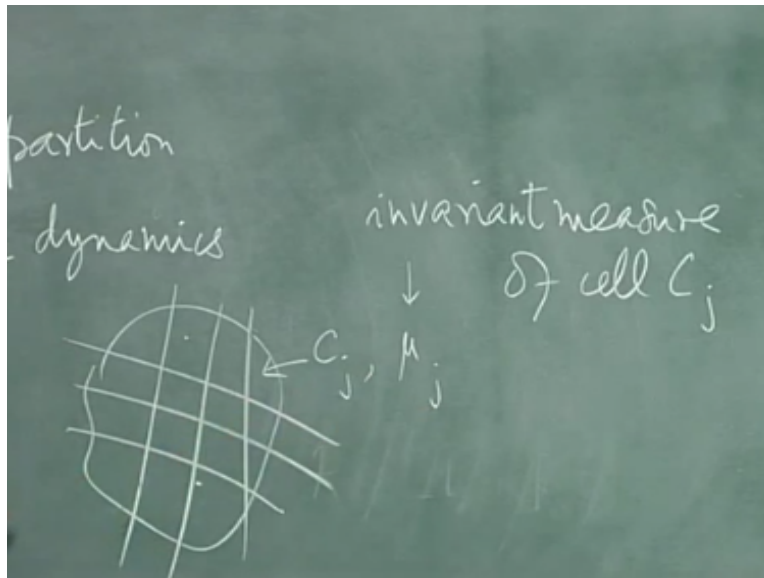 partition
dynamics
invariant measure
of cell C_j
↓
← C_j, μ_j